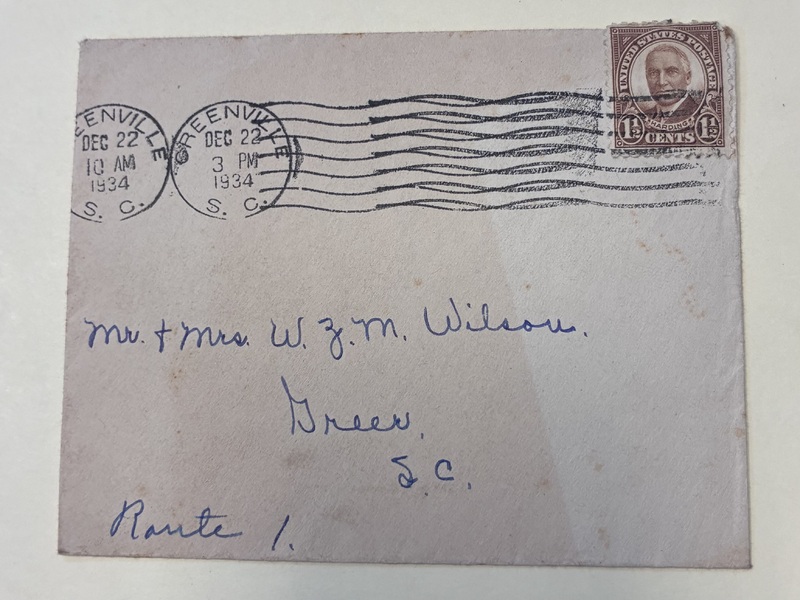 GREENVILLE
DEC 22
10 AM
1934
S. C.
GREENVILLE
DEC 22
3 PM
1934
S. C.
UNITED STATES POSTAGE
HARDING
1½ CENTS 1½
Mr. & Mrs. W. Z. M. Wilson.
Greer,
S. C.
Route 1.